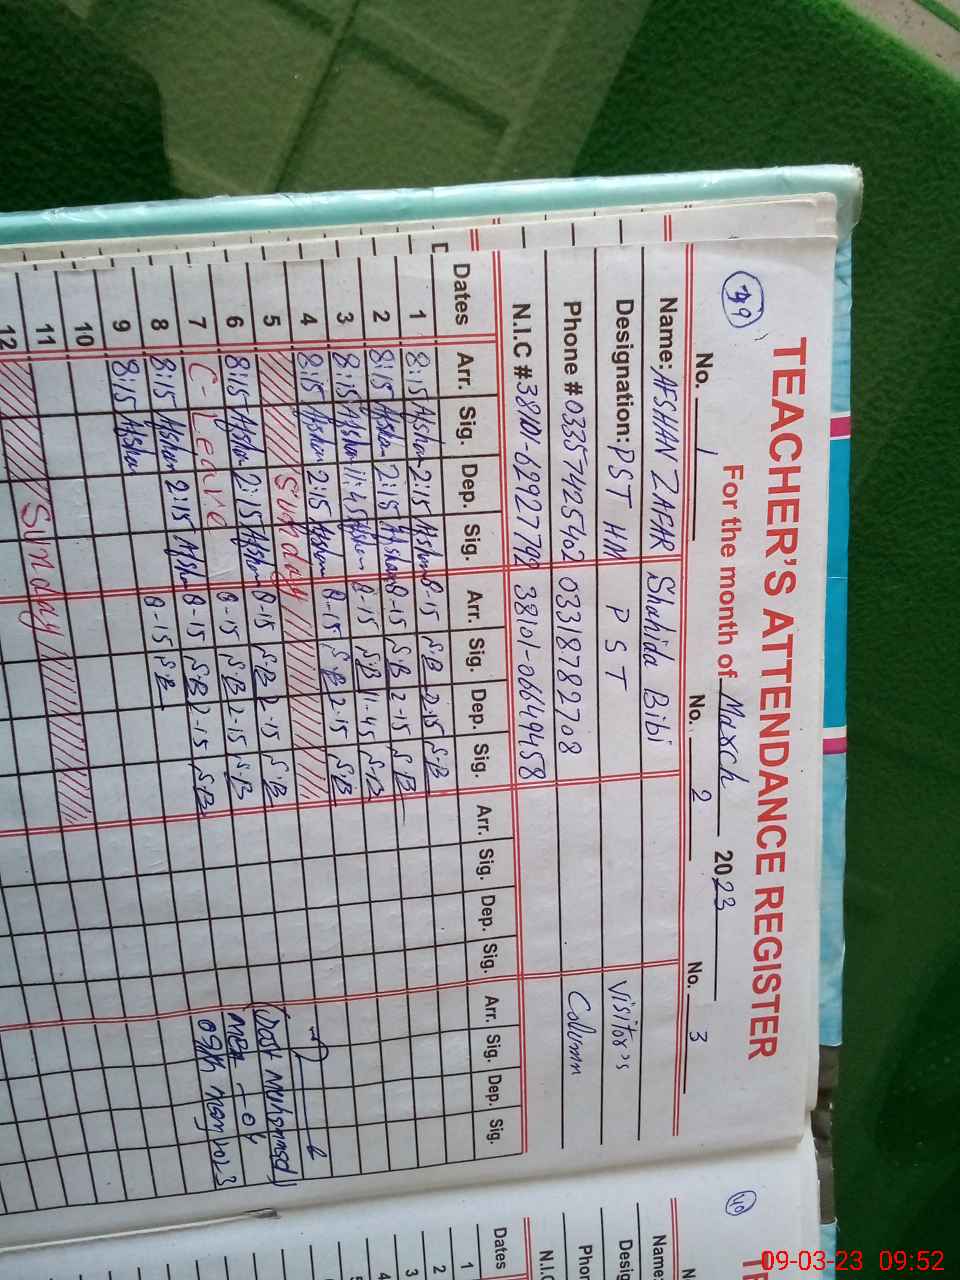 39
TEACHER'S ATTENDANCE REGISTER
For the month of March 2023
No. 1 No. 2 No. 3
Name: AFSHAN ZAFAR Shahida Bibi
Designation: PST HM P S T Visitor's
Phone # 03357425402 03318782708 Column
N.I.C # 38101-0649458
Dates Arr. Sig. Dep. Sig. Arr. Sig. Dep. Sig. Arr. Sig. Dep. Sig. Arr. Sig. Dep. Sig.
1 8:15 Afshan 2:15 Afshan 8-15 S.B 2-15 S.B
2 8:15 Afshan 2:15 Afshan 8-15 S.B 2-15 S.B
3 8:15 Afshan 11:45 Afshan 8-15 S.B 11-45 S.B
4 8:15 Afshan 2:15 Afshan 8-15 S.B 2-15 S.B
5 Sunday
6 8:15 Afshan 2:15 Afshan 8-15 S.B 2-15 S.B
7 C-Leave 8-15 S.B 2-15 S.B
8 8:15 Afshan 2:15 Afshan 8-15 S.B 2-15 S.B
9 8:15 Afshan 8-15 S.B
10
11
12 Sunday
Dost Muhammad
MEA - 04
09th March 2023
40
TE
N
Name:
Desig
Phon
N.I.C
Dates
1
2
3
4
09-03-23 09:52